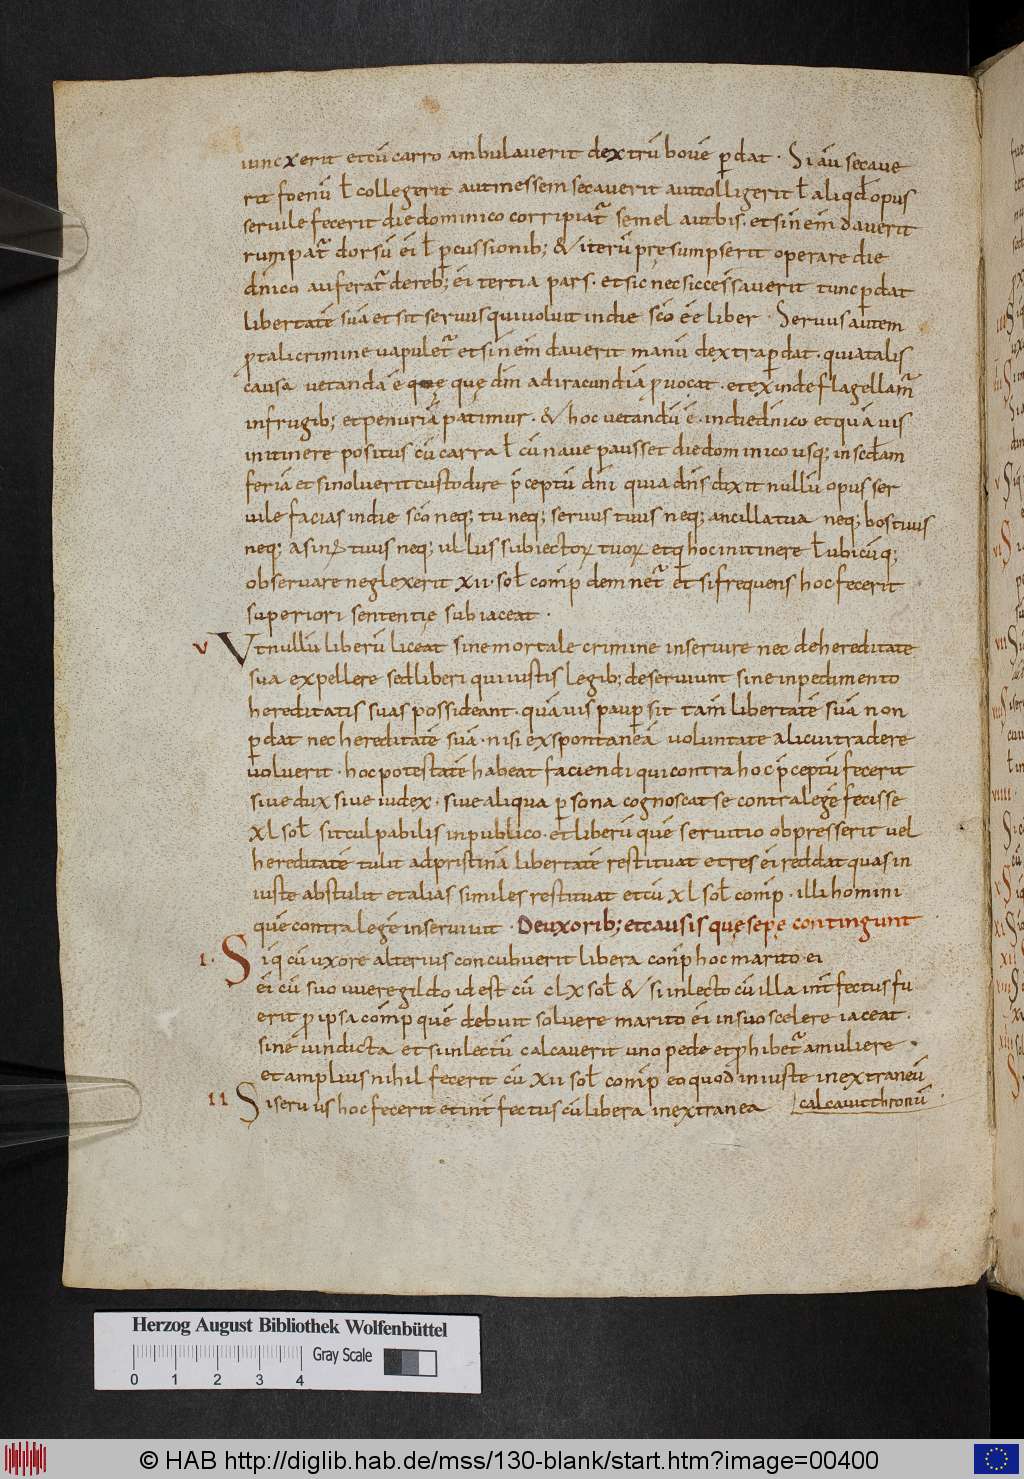 iuncxerit et cū carro ambulauerit dextrū bouē p̱dat · Si aū secaue
rit foenū ł collegerit aut messem secauerit aut colligerit ł aliqd̄ opus
seruile fecerit die dominico corripiat᷑ semel aut bis · et si n̄ em̄dauerit
rumpat᷑ dorsū ei ł p̱cussionib; & iterū pręsumpserit operare die
dn̄ico auferat᷑ dereb; ei tertia pars · et sic nec sic cessauerit tunc p̱dat
libertatē suā et sit seruus qui uoluit in die sc̄o eē liber · Seruus autem
ꝓ tali crimine uapulet᷑ et si n̄ em̄dauerit manū dextra p̱dat · quia talis
causa uetanda ē quę dm̄ ad iracundiā ꝓuocat · et exinde flagellam᷑
in frugib; et penuriā patimur · & hoc uetandū ē · in die dn̄ico et quāuis
in itinere positus cū carra ł cū naue pausset die dominico usq; in scd̄am
feriā et si noluerit custodire p̄ceptū dn̄i quia dn̄s dixit nullū opus ser
uile facias in die sc̄o neq; tu neq; seruus tuus neq; ancilla tua neq; bos tuus
neq; asinꝰ tuus neq; ullus subiectoꝝ tuoꝝ et q̱ hoc in itinere ł ubicūq;
obseruare neglexerit xii · sol̄ comp̄ demnet᷑ et si frequens hoc fecerit
superiori sententię subiaceat ·
v Ut nullū liberū liceat sine mortale crimine inseruire nec de hereditate
sua expellere sed liberi qui iustis legib; deseruiunt sine inpedimento
hereditatis suas possideant · quāuis paup̱ sit tam̄ libertatē suā non
p̱dat nec hereditatē suā · nisi ex spontaneā uoluntate alicui tradere
uoluerit · hoc potestatē habeat faciendi qui contra hoc p̄ceptū fecerit
siue dux siue iudex · siue aliqua p̱sona cognoscat se contra legē fecisse
xl sol̄ sit culpabilis in publico · et liberū quē seruitio obpresserit uel
hereditatē tulit ad pristinā libertatē restituat et res ei reddat quas in
iuste abstulit et alias similes restituat et cū xl sol̄ comp̄ · illi homini
quē contra legē inseruiuit · De uxorib; et causis quę sepę contingunt
i · Si q̱ cū uxore alterius concubuerit libera comp̄ hoc marito ei
ei cū suo uueregildo id est cū clx sol̄ & si in lecto cū illa int̄fectus fu
erit ꝓ ipsa comp̄ quē debuit soluere marito ei in suo scelere iaceat ·
sine uindicta et si in lectū calcauerit uno pede et ꝓhibet᷑ a muliere ·
et amplius nihil fecerit cū xii sol̄ comp̄ eo quod iniuste in extraneū
calcauit thronū ·
ii Si seruus hoc fecerit et int̄fectus cū libera in extranea
Herzog August Bibliothek Wolfenbüttel
Gray Scale
0 1 2 3 4
© HAB http://diglib.hab.de/mss/130-blank/start.htm?image=00400